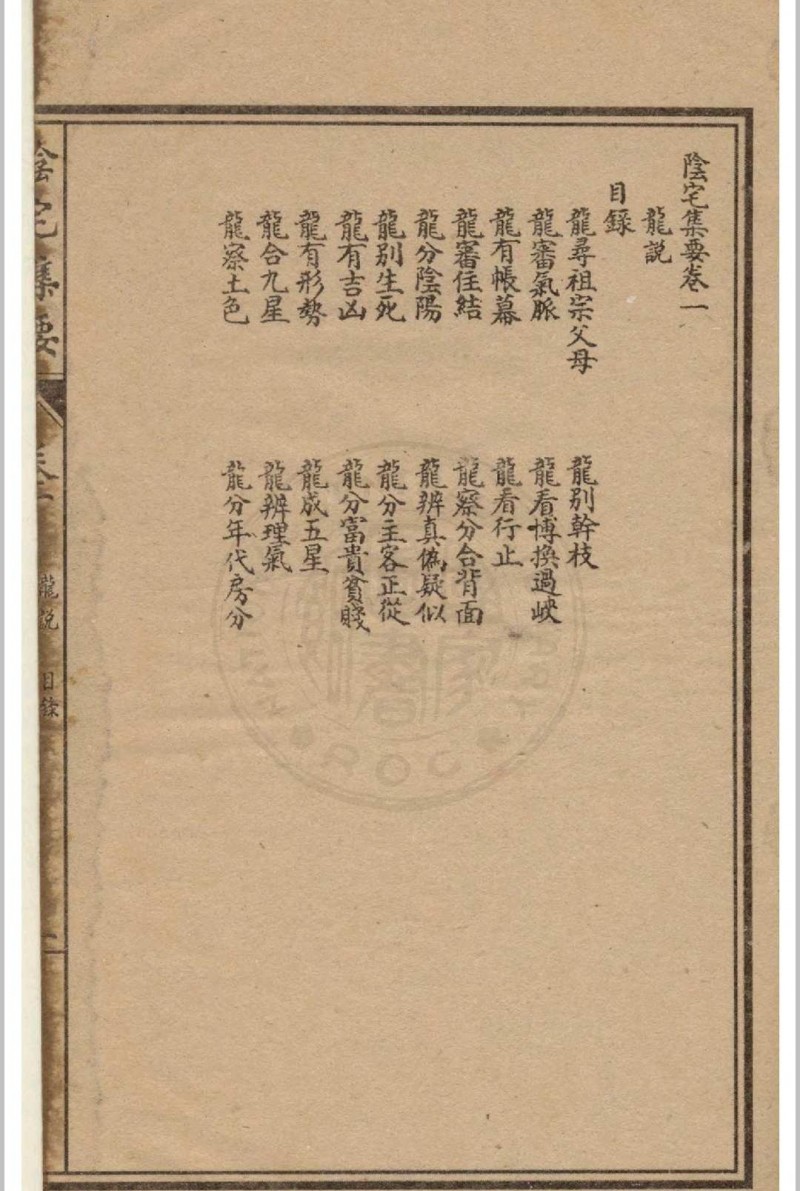 陰宅集要卷一
龍説
目録
龍尋祖宗父母
龍別幹枝
龍審氣脈
龍看博換過峽
龍有帳幕
龍看行止
龍審住結
龍察分合背面
龍分陰陽
龍辨真偽疑似
龍別生死
龍分主客正從
龍有吉凶
龍分富貴貧賤
龍有形勢
龍成五星
龍合九星
龍辨理氣
龍察土色
龍分年代房分
陰宅集要
龍説
目録